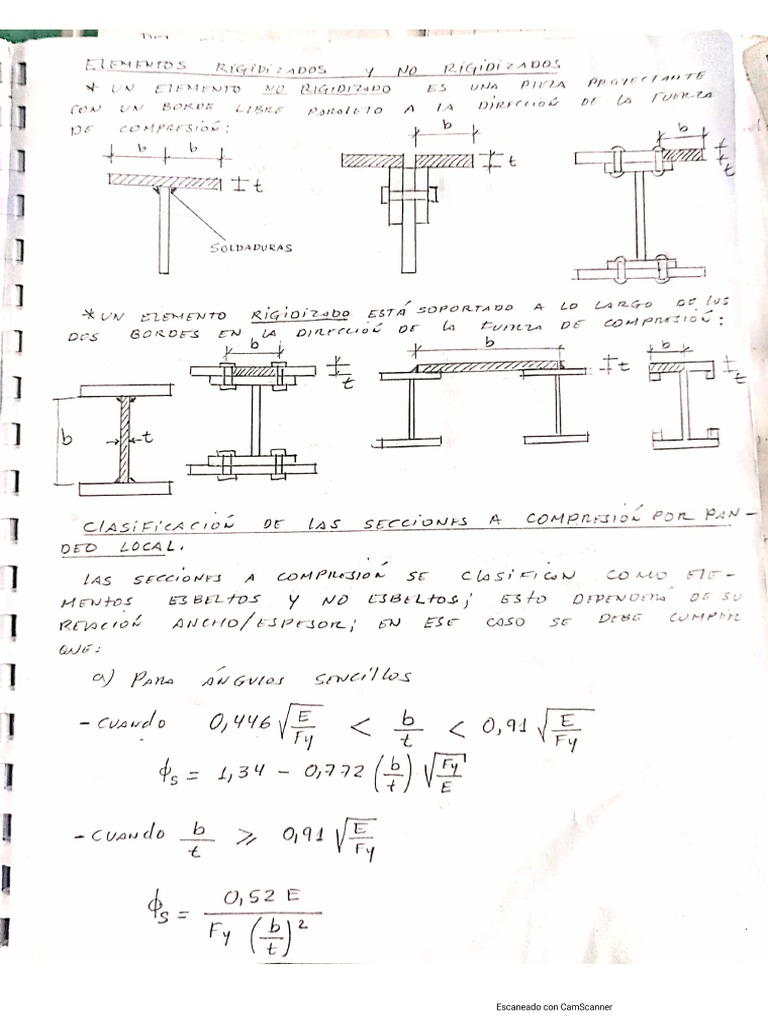 ELEMENTOS RIGIDIZADOS Y NO RIGIDIZADOS
* UN ELEMENTO NO RIGIDIZADO ES UNA PIEZA PROYECTANTE
CON UN BORDE LIBRE PARALELO A LA DIRECCIÓN DE LA FUERZA
DE COMPRESIÓN:
b b
t
SOLDADURAS
b
t
b
t
* UN ELEMENTO RIGIDIZADO ESTÁ SOPORTADO A LO LARGO DE LOS
DOS BORDES EN LA DIRECCIÓN DE LA FUERZA DE COMPRESIÓN:
b
t
b
t
b
t
b
t
CLASIFICACIÓN DE LAS SECCIONES A COMPRESIÓN POR PAN-
DEO LOCAL.
LAS SECCIONES A COMPRESIÓN SE CLASIFICAN COMO ELE-
MENTOS ESBELTOS Y NO ESBELTOS; ESTO DEPENDERÁ DE SU
RELACIÓN ANCHO/ESPESOR; EN ESE CASO SE DEBE CUMPLIR
QUE:
a) PARA ÁNGULOS SENCILLOS
- CUANDO 0,446 √(E/Fy) < b/t < 0,91 √(E/Fy)
ϕs = 1,34 - 0,772 (b/t) √(Fy/E)
- CUANDO b/t ⩾ 0,91 √(E/Fy)
ϕs = 0,52 E / Fy (b/t)²
Escaneado con CamScanner